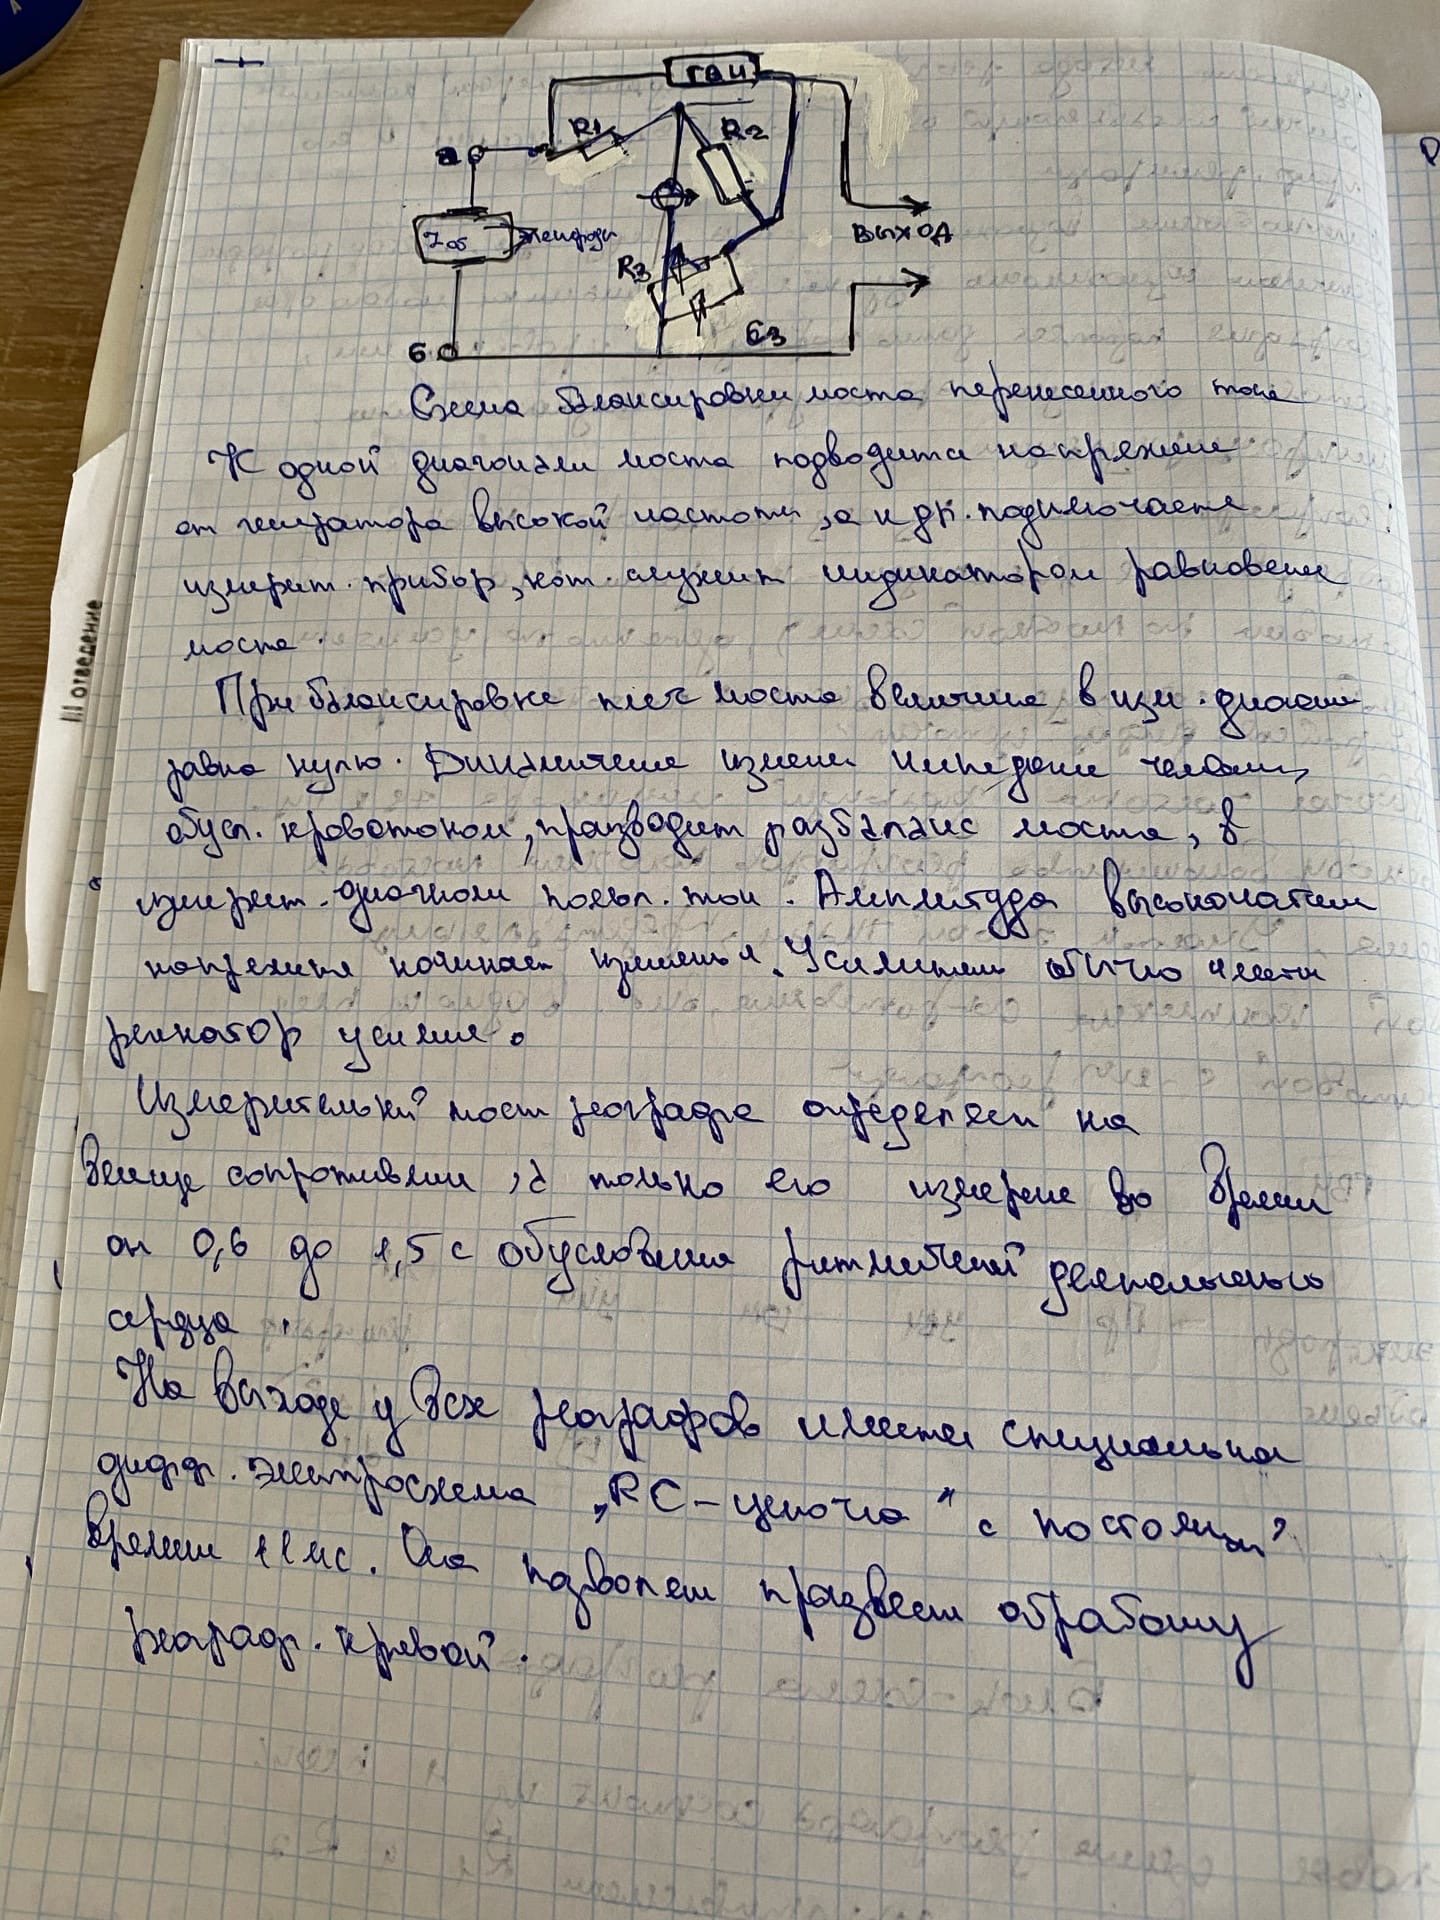 ГВЧ
R1
R2
а
Zоб
электроды
R3
ВЫХОД
б
C3
Схема балансировки моста переменного тока
К одной диагонали моста подводится напряжение
от генератора высокой частоты, а к др. подключается
измерит. прибор, кот. служит индикатором равновесия
моста.
При балансировке плеч моста величина в изм. диагонали
равна нулю. Динамическое измен. импеданса человека,
обусл. кровотоком, празводит разбаланс моста, в
измерит. диагонали появл. ток. Амплитуда высокочастотн
напряжения начинает изменяться. Усилитель обычно имеет
регулятор усиления.
Измерительный мост реографа определяет на
величине сопротивлен, а только его измерение во время
от 0,6 до 1,5 с обусловлена ритмической деятельностью
сердца.
На выходе у всех реографов имеется специальная
дифф. электросхема „RC-цепочка" с постоянной
времени 11мс. Она позволяет празвести обработку
реограф. кривой.
III отведение